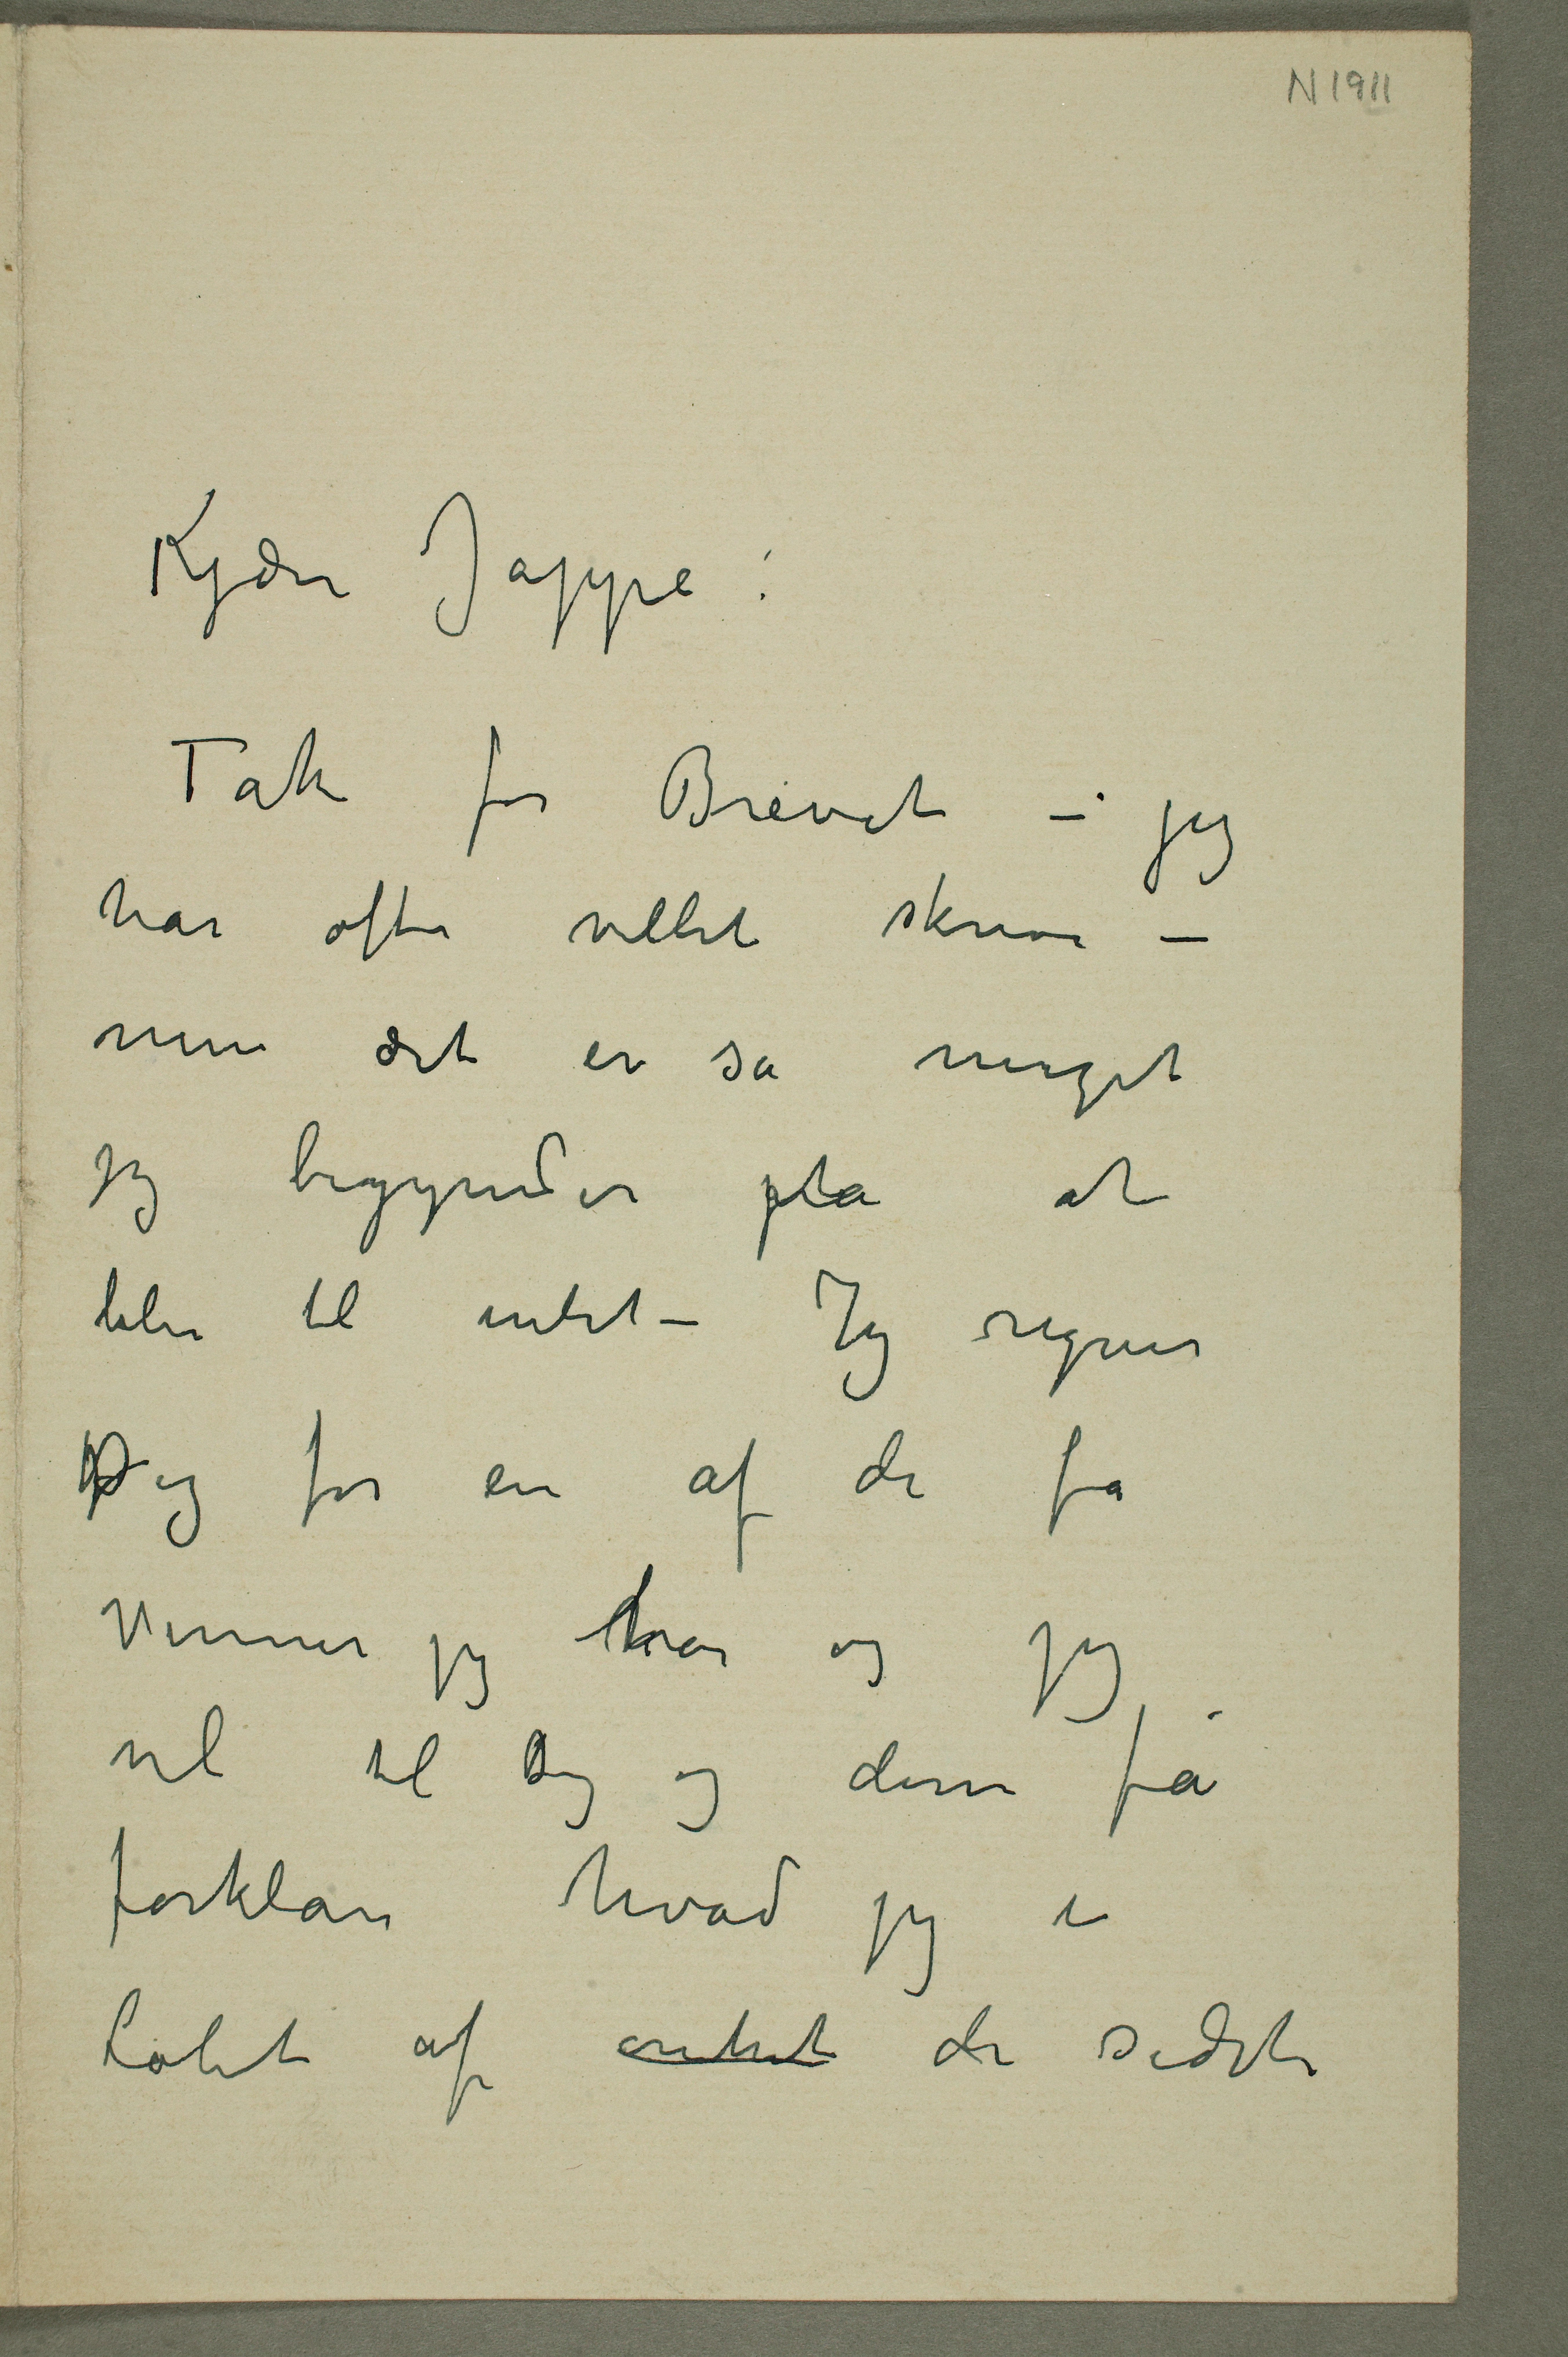 N 1911
Kjære Jappe!
Tak for Brevet – jeg
har ofte villet skrive –
men det er så meget
jeg begynder på at
blir til intet – Jeg regner
Dig for en af de få
Venner jeg har og jeg
vil til Dig og dem få
forklare hvad jeg i
Løbet af de sidste